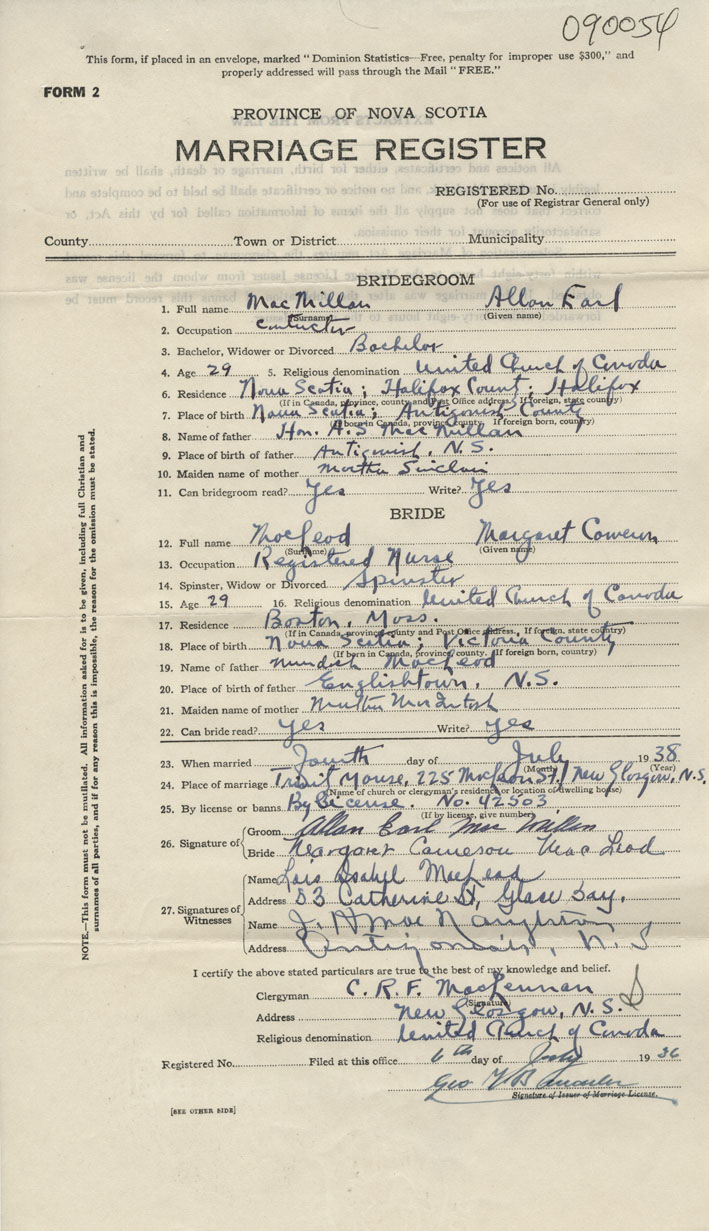 090054
This form, if placed in an envelope, marked "Dominion Statistics—Free, penalty for improper use $300," and
properly addressed will pass through the Mail "FREE."
FORM 2
PROVINCE OF NOVA SCOTIA
MARRIAGE REGISTER
REGISTERED No.
(For use of Registrar General only)
County Town or District Municipality
BRIDEGROOM
1. Full name MacMillan Allan Earl
(Surname) (Given name)
2. Occupation
3. Bachelor, Widower or Divorced Bachelor
4. Age 29 5. Religious denomination United Church of Canada
6. Residence Nova Scotia; Halifax County; Halifax
(If in Canada, province, county and Post Office address. If foreign, state country)
7. Place of birth Nova Scotia; Antigonish County
(If born in Canada, province, county. If foreign born, country)
8. Name of father Hon. A.S. MacMillan
9. Place of birth of father Antigonish, N.S.
10. Maiden name of mother Martha Sinclair
11. Can bridegroom read? Yes Write? Yes
BRIDE
12. Full name MacLeod Margaret Cameron
(Surname) (Given name)
13. Occupation Registered Nurse
14. Spinster, Widow or Divorced Spinster
15. Age 29 16. Religious denomination United Church of Canada
17. Residence Boston, Mass.
(If in Canada, province, county and Post Office address. If foreign, state country)
18. Place of birth Nova Scotia; Victoria County
(If born in Canada, province, county. If foreign born, country)
19. Name of father MacLeod
20. Place of birth of father Englishtown, N.S.
21. Maiden name of mother MacIntosh
22. Can bride read? Yes Write? Yes
23. When married Fourth day of July 1938
(Month) (Year)
24. Place of marriage House, 225 St. New Glasgow, N.S.
(Name of church or clergyman's residence or location of dwelling house)
25. By license or banns By License. No. 42503
(If by license, give number)
26. Signature of Groom Allan Earl MacMillan
Bride Margaret Cameron MacLeod
27. Signatures of Witnesses
Name Lois Isabel MacLeod
Address 53 Catherine St, Glace Bay.
Name J.
Address Antigonish, N.S
I certify the above stated particulars are true to the best of my knowledge and belief.
Clergyman C. R. F. MacLennan
(Signature)
Address New Glasgow, N.S.
Religious denomination United Church of Canada
Registered No. Filed at this office 6th day of July 19
Geo
Signature of Issuer of Marriage License.
[SEE OTHER SIDE]
NOTE.—This form must not be mutilated. All information asked for is to be given, including full Christian and
surnames of all parties, and if for any reason this is impossible, the reason for the omission must be stated.